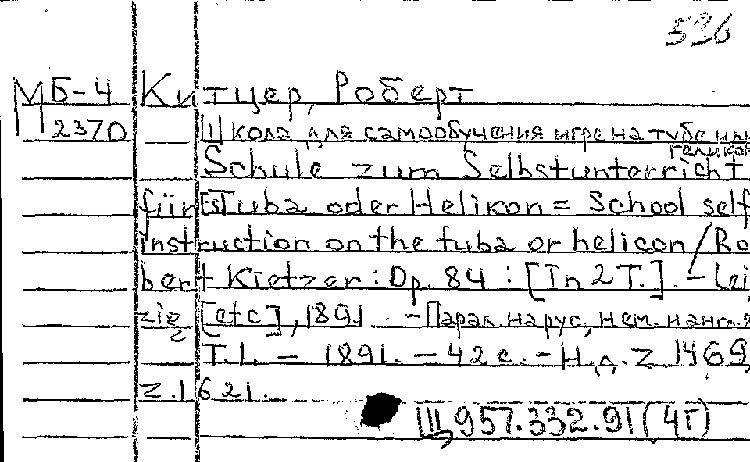 536
МБ-4 Китцер, Роберт
2370 Школа для самообучения игре на тубе или
геликон
Schule zum Selbstunterricht
für [Es] Tuba oder Helikon = School self
instruction on the tuba or helicon / Ro
bert Kietzer : Op. 84 : [In 2 T.]. - Lei
zig [etc], 1891 - Парал. на рус., нем. и англ. я
T.1. - 1891. - 42 c. - Н.д. Z 1469,
Z.1621.
Щ957.332.91(4Г)